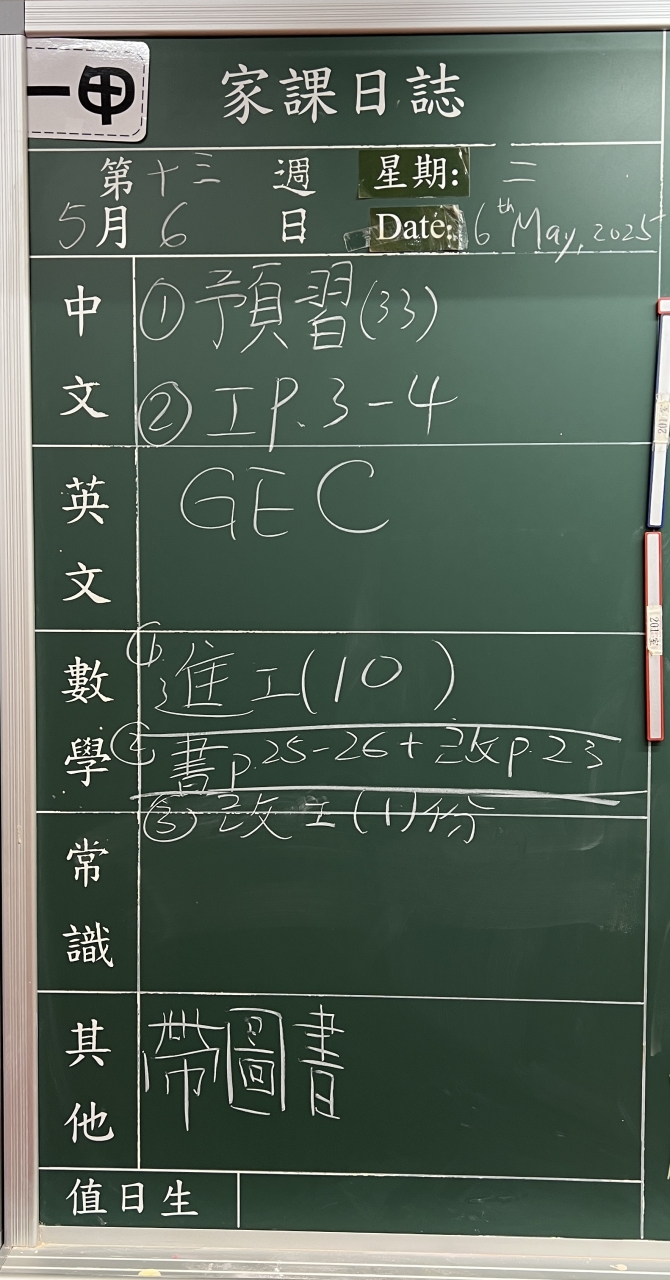 一甲
家課日誌
第十三週 星期: 二
5月6日 Date: 6th May, 2025
中文
①預習(33)
②工P.3-4
英文
GEC
數學
①進工(10)
②書p.25-26+改p.23
③改工(1)份
常識
其他
帶圖書
值日生